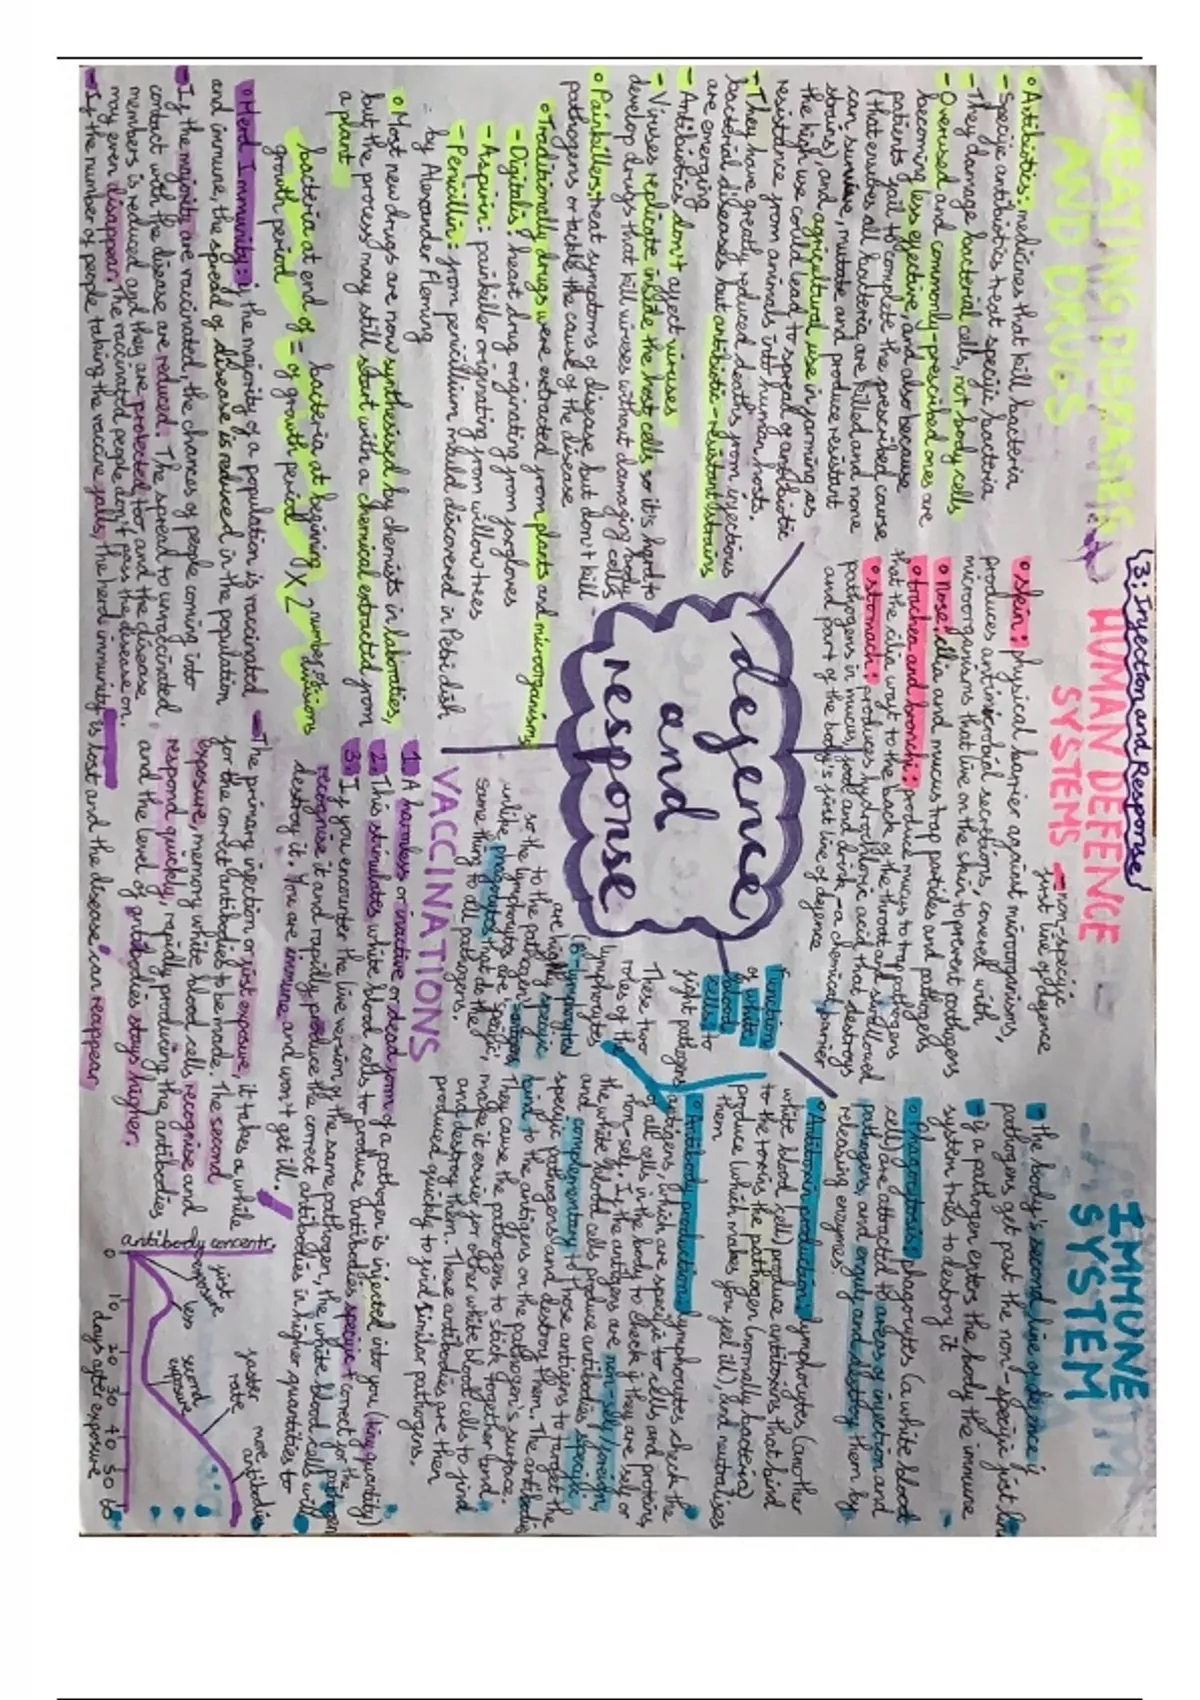 (3: Infection and Response)
TREATING DISEASES
AND DRUGS
• Antibiotics: medicines that kill bacteria
- Specific antibiotics treat specific bacteria
- They damage bacterial cells, not body cells
- Overused and commonly-prescribed ones are
becoming less effective, and also because
patients fail to complete the prescribed course
(that ensures all bacteria are killed and none
can survive, mutate and produce resistant
strains), and agricultural use in farming as
the high use could lead to spread of antibiotic
resistance from animals into human hosts.
- They have greatly reduced deaths from infectious
bacterial diseases but antibiotic-resistant strains
are emerging
- Antibiotics don't affect viruses
- Viruses replicate inside the host cells so it's hard to
develop drugs that kill viruses without damaging body cells
• Painkillers: treat symptoms of disease but don't kill
pathogens or tackle the cause of the disease
• Traditionally drugs were extracted from plants and microorganisms
- Digitalis: heart drug originating from foxgloves
- Aspirin: painkiller originating from willow trees
- Penicillin: from penicillium mould discovered in Petri dish
by Alexander Fleming
• Most new drugs are now synthesised by chemists in laboratories,
but the process may still start with a chemical extracted from
a plant
bacteria at end of growth period = bacteria at beginning of growth period × 2 number of divisions
HUMAN DEFENCE
SYSTEMS
- non-specific
first line of defence
• skin: physical barrier against microorganisms,
produces antimicrobial secretions, covered with
microorganisms that live on the skin to prevent pathogens
• nose: cilia and mucus trap particles and pathogens
• trachea and bronchi: produce mucus to trap pathogens
that the cilia waft to the back of the throat and swallowed
• stomach: produces hydrochloric acid that destroys
pathogens in mucus, food and drink - a chemical barrier
and part of the body's first line of defence
defence
and
response
IMMUNE
SYSTEM
- the body's second line of defence if
pathogens get past the non-specific first line
- if a pathogen enters the body the immune
system tries to destroy it
Function
of white
blood
cells: to
fight pathogens
• Phagocytosis: phagocytes (a white blood
cell) are attracted to areas of infection and
pathogens, and engulf and destroy them by
releasing enzymes.
• Antitoxin production: lymphocytes (another
white blood cell) produce antitoxins that bind
to the toxins the pathogen (normally bacteria)
produce (which makes you feel ill), and neutralises
them
• Antibody production: lymphocytes check the
antigens, which are specific to cells and proteins,
of all cells in the body to check if they are self or
non-self. If the antigens are non-self/foreign,
the white blood cells produce antibodies specific
and complementary to those antigens to target the
specific pathogens and destroy them. The antibodies
bind to the antigens on the pathogen's surface.
They cause the pathogens to stick together and
make it easier for other white blood cells to find
and destroy them. These antibodies are then
produced quickly to find similar pathogens.
These two
roles of the
lymphocytes
(B-lymphocytes)
are highly specific
to the pathogen/antigen,
so the lymphocytes are specific,
unlike phagocytes that do the
same thing to all pathogens.
VACCINATIONS
1. A harmless or inactive or dead form of a pathogen is injected into you (tiny quantity)
2. This stimulates white blood cells to produce antibodies specific + correct for the pathogen
3. If you encounter the live version of the same pathogen, the white blood cells will
recognise it and rapidly produce the correct antibodies in higher quantities to
destroy it. You are immune and won't get ill.
- The primary infection or first exposure, it takes a while
for the correct antibodies to be made. The second
exposure, memory white blood cells recognise and
respond quickly, rapidly producing the antibodies
and the level of antibodies stays higher.
• Herd Immunity: if the majority of a population is vaccinated
and immune, the spread of disease is reduced in the population
- If the majority are vaccinated, the chances of people coming into
contact with the disease are reduced. The spread to unvaccinated
members is reduced and they are protected too, and the disease
may even disappear. The vaccinated people don't pass the disease on.
- If the number of people taking the vaccine falls, the herd immunity is lost and the disease can reappear
antibody concentr.
first
exposure
less
second
exposure
faster
rate
more
antibodies
0 10 20 30 40 50 60
days after exposure